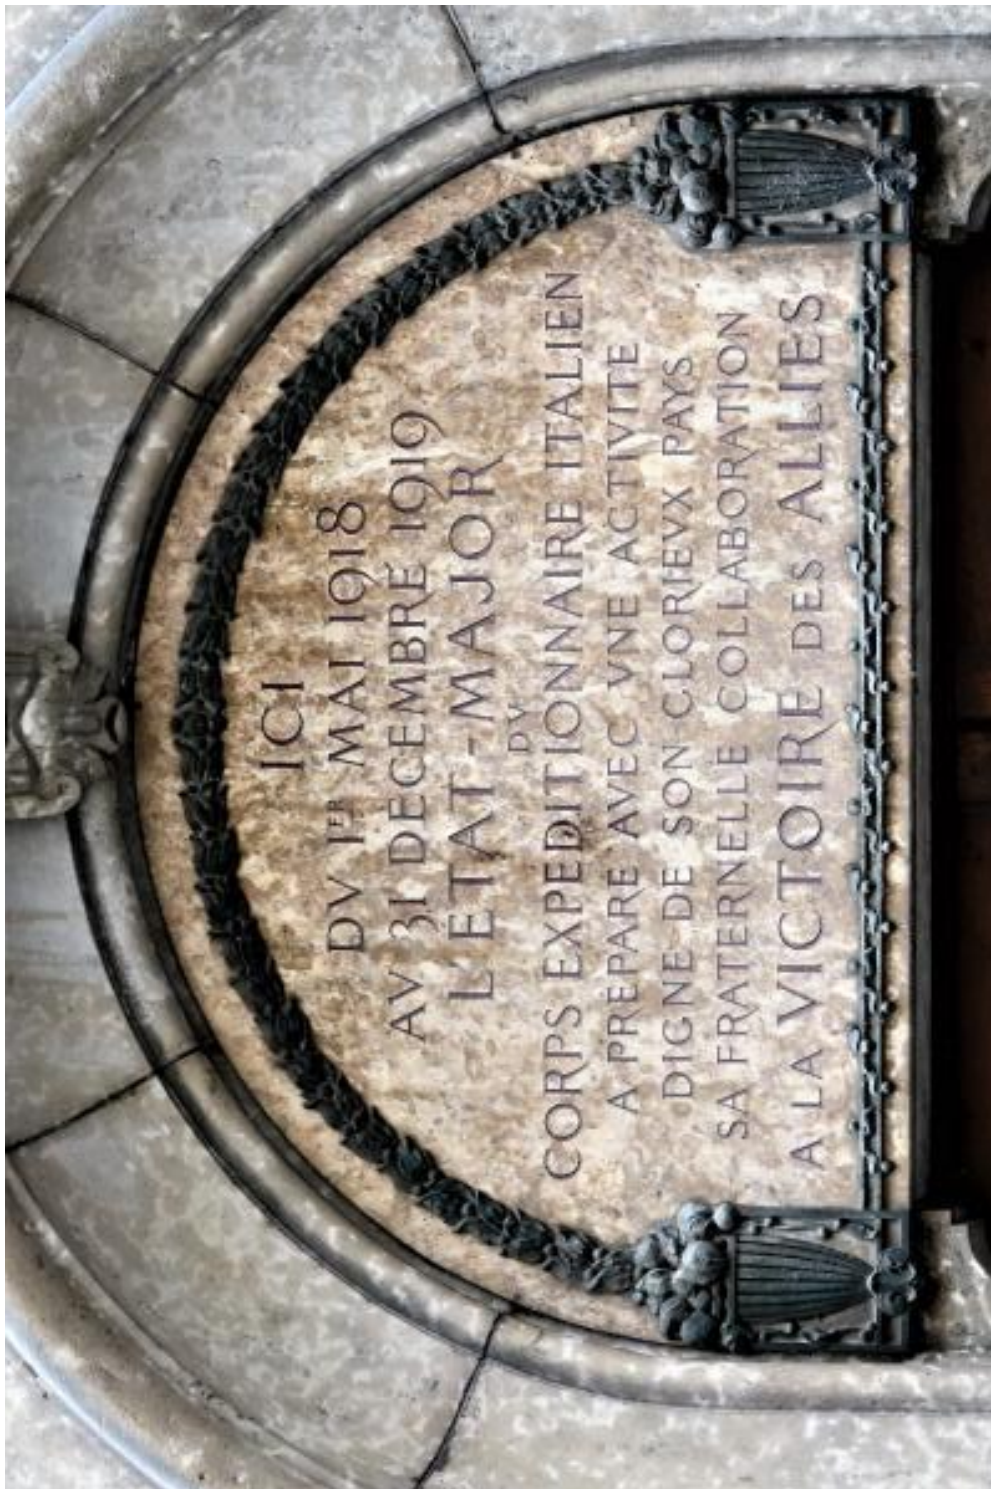 ICI
DV 1ER MAI 1918
AV 31 DECEMBRE 1919
L'ETAT-MAJOR
DV
CORPS EXPEDITIONNAIRE ITALIEN
A PREPARE AVEC VNE ACTIVITE
DIGNE DE SON GLORIEVX PAYS
SA FRATERNELLE COLLABORATION
A LA VICTOIRE DES ALLIES